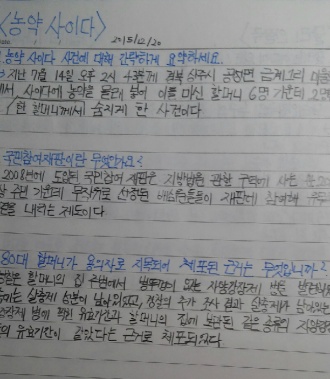 <농약 사이다>
2015/12/20
농약 사이다 사건에 대해 간략하게 요약하세요.
지난 7월 14일 오후 2시 경북 상주시 공성면 금계1리 마을
에서, 사이다에 농약을 몰래 넣어 이를 마신 할머니 6명 가운데 2명
한 할머니께서 숨지게 한 사건이다
국민참여재판이란 무엇인가요?
2008년에 도입된 국민참여 재판은 지방법원 관할 구역에 사는
주민 가운데 무작위로 선정된 배심원들이 재판에 참여해
을 내리는 제도이다.
80대 할머니가 용의자로 지목되어 체포된 근거는 무엇입니까?
경찰은 할머니의 집 주변에서 병뚜껑이 없는 자양강장제 병을 발견
에는 살충제 성분이 남아있었고, 경찰의 추가 조사 결과 살충제가 남아있는
강장제 병에 찍힌 유효기간과 할머니의 집에 보관된 같은 종류의 자양강장
의 유효기간이 같았다는 근거로 체포되었다.